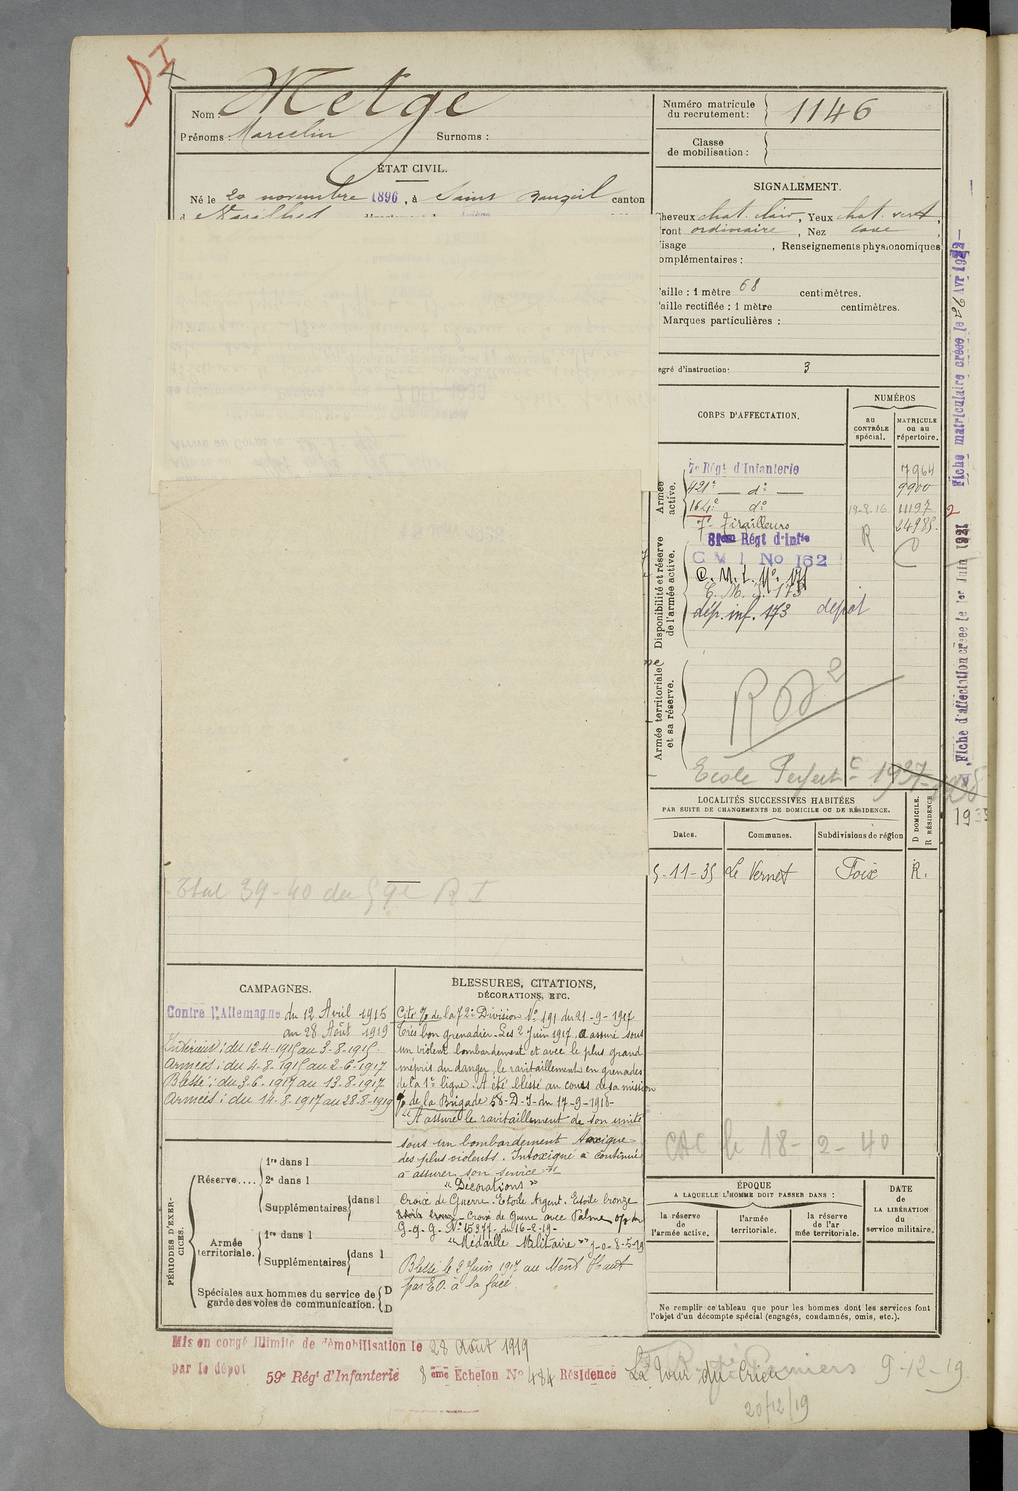 DI
Nom Metge
Prénoms : Marcelin Surnoms :
Numéro matricule du recrutement : 1146
Classe de mobilisation :
ÉTAT CIVIL.
Né le 20 novembre 1896, à Saint Bauzeil canton
SIGNALEMENT.
Cheveux chat. clair, Yeux chat. vert,
ront ordinaire, Nez cave
isage , Renseignements physionomiques
omplémentaires :
aille : 1 mètre 68 centimètres.
aille rectifiée : 1 mètre centimètres.
Marques particulières :
egré d'instruction : 3
CORPS D'AFFECTATION.
NUMÉROS
au CONTRÔLE spécial.
MATRICULE ou au répertoire.
Armée active.
7e Régt d'Infanterie 7964
421e — do — 9900
164e do 19-8-16 11197
7e Tirailleurs R 24985
Disponibilité et réserve de l'armée active.
81ème Régt d'Infie
C M I No 162
C. M. I. No 171
C. M. I. 173
dép. inf. 173 dépot
Armée territoriale et sa réserve.
Ecole Perfect
1937
Fiche d'affectation créée le 1er Juin 1921
Fiche matriculaire créée le Avr 19
LOCALITÉS SUCCESSIVES HABITÉES
PAR SUITE DE CHANGEMENTS DE DOMICILE OU DE RÉSIDENCE.
D DOMICILE.
R RÉSIDENCE
Dates. Communes. Subdivisions de région
5-11-35 Le Vernet Foix R.
Etat 39-40 du 59e R I
CAMPAGNES.
Contre l'Allemagne du 12 Avril 1915
au 28 Août 1919
Intérieur : du 12-4-1915 au 3-8-1915.
Armées : du 4-8-1915 au 2-6-1917
Blessé : du 3-6-1917 au 13-8-1917
Armées : du 14-8-1917 au 28-8-1919
BLESSURES, CITATIONS,
DÉCORATIONS, ETC.
Cité % de la 72e Division No 191 du 21-9-1917
Très bon grenadier. Les 2 Juin 1917, a assuré sous
un violent bombardement et avec le plus grand
mépris du danger, le ravitaillement en grenades
de la 1e ligne. A été blessé au cours de sa mission
% de la Brigade 58-D-I-du 17-9-1918-
"A assuré le ravitaillement de son unité
sous un bombardement toxique
des plus violents. Intoxiqué a continué
à assurer son service"
"Décorations"
Croix de Guerre. Etoile Argent. Etoile bronze
Croix de Guerre avec Palme
G-Q-G- No 15377 du 16-2-19-
"Médaille Militaire" J-O-8-5-19
Blessé le 2 Juin 1917 au Mont Haut
par EO. à la face
CAC le 18-2-40
PÉRIODES D'EXERCICES.
Réserve.... 1re dans l
2e dans l
Supplémentaires dans l
Armée territoriale. 1re dans l
Supplémentaires dans l
Spéciales aux hommes du service de garde des voies de communication. D
D
ÉPOQUE
A LAQUELLE L'HOMME DOIT PASSER DANS :
la réserve de l'armée active.
l'armée territoriale.
la réserve de l'armée territoriale.
DATE de LA LIBÉRATION du service militaire.
Ne remplir ce tableau que pour les hommes dont les services font
l'objet d'un décompte spécial (engagés, condamnés, omis, etc.).
Mis en congé illimité de démobilisation le 28 Août 1919
par le dépot 59e Régt d'Infanterie 8ème Echelon No 484 Résidence La Tour du Crieu
Pamiers 9-12-19
20/12/19